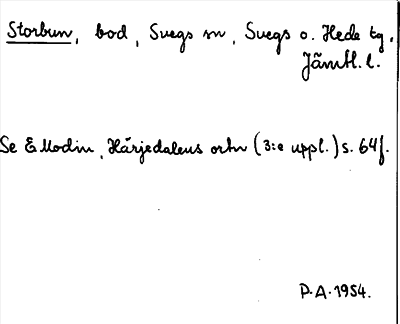 Storbun, bod, Svegs sn, Svegs o. Hede tg,
Jämtl. l.
Se E Modin, Härjedalens ortn (3:e uppl.) s. 64f.
P.A. 1954.